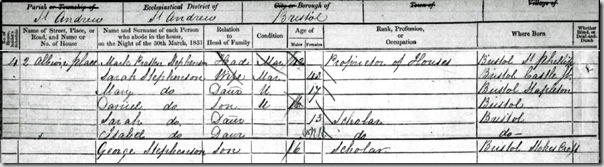 Parish or Township of Ecclesiastical District of City or Borough of Town of Village of
St Andrew St Andrew Bristol
Name of Street, Place, or Road, and Name or No. of House Name and Surname of each Person who abode in the house, on the Night of the 30th March, 1851 Relation to Head of Family Condition Age of Males Females Rank, Profession, or Occupation Where Born Whether Blind, or Deaf-and-Dumb
4 2 Albion place Mark Stephenson Head Mar 42 Proprietor of Houses Bristol St Phillip
Sarah Stephenson Wife Mar 43 Bristol Castle
Mary do Daur U 17 Bristol Stapleton
Daniel do Son U 16 Bristol
Sarah do Daur 13 Scholar Bristol
Isabel do Daur do do
George Stephenson Son 6 Scholar Bristol Stokes Croft